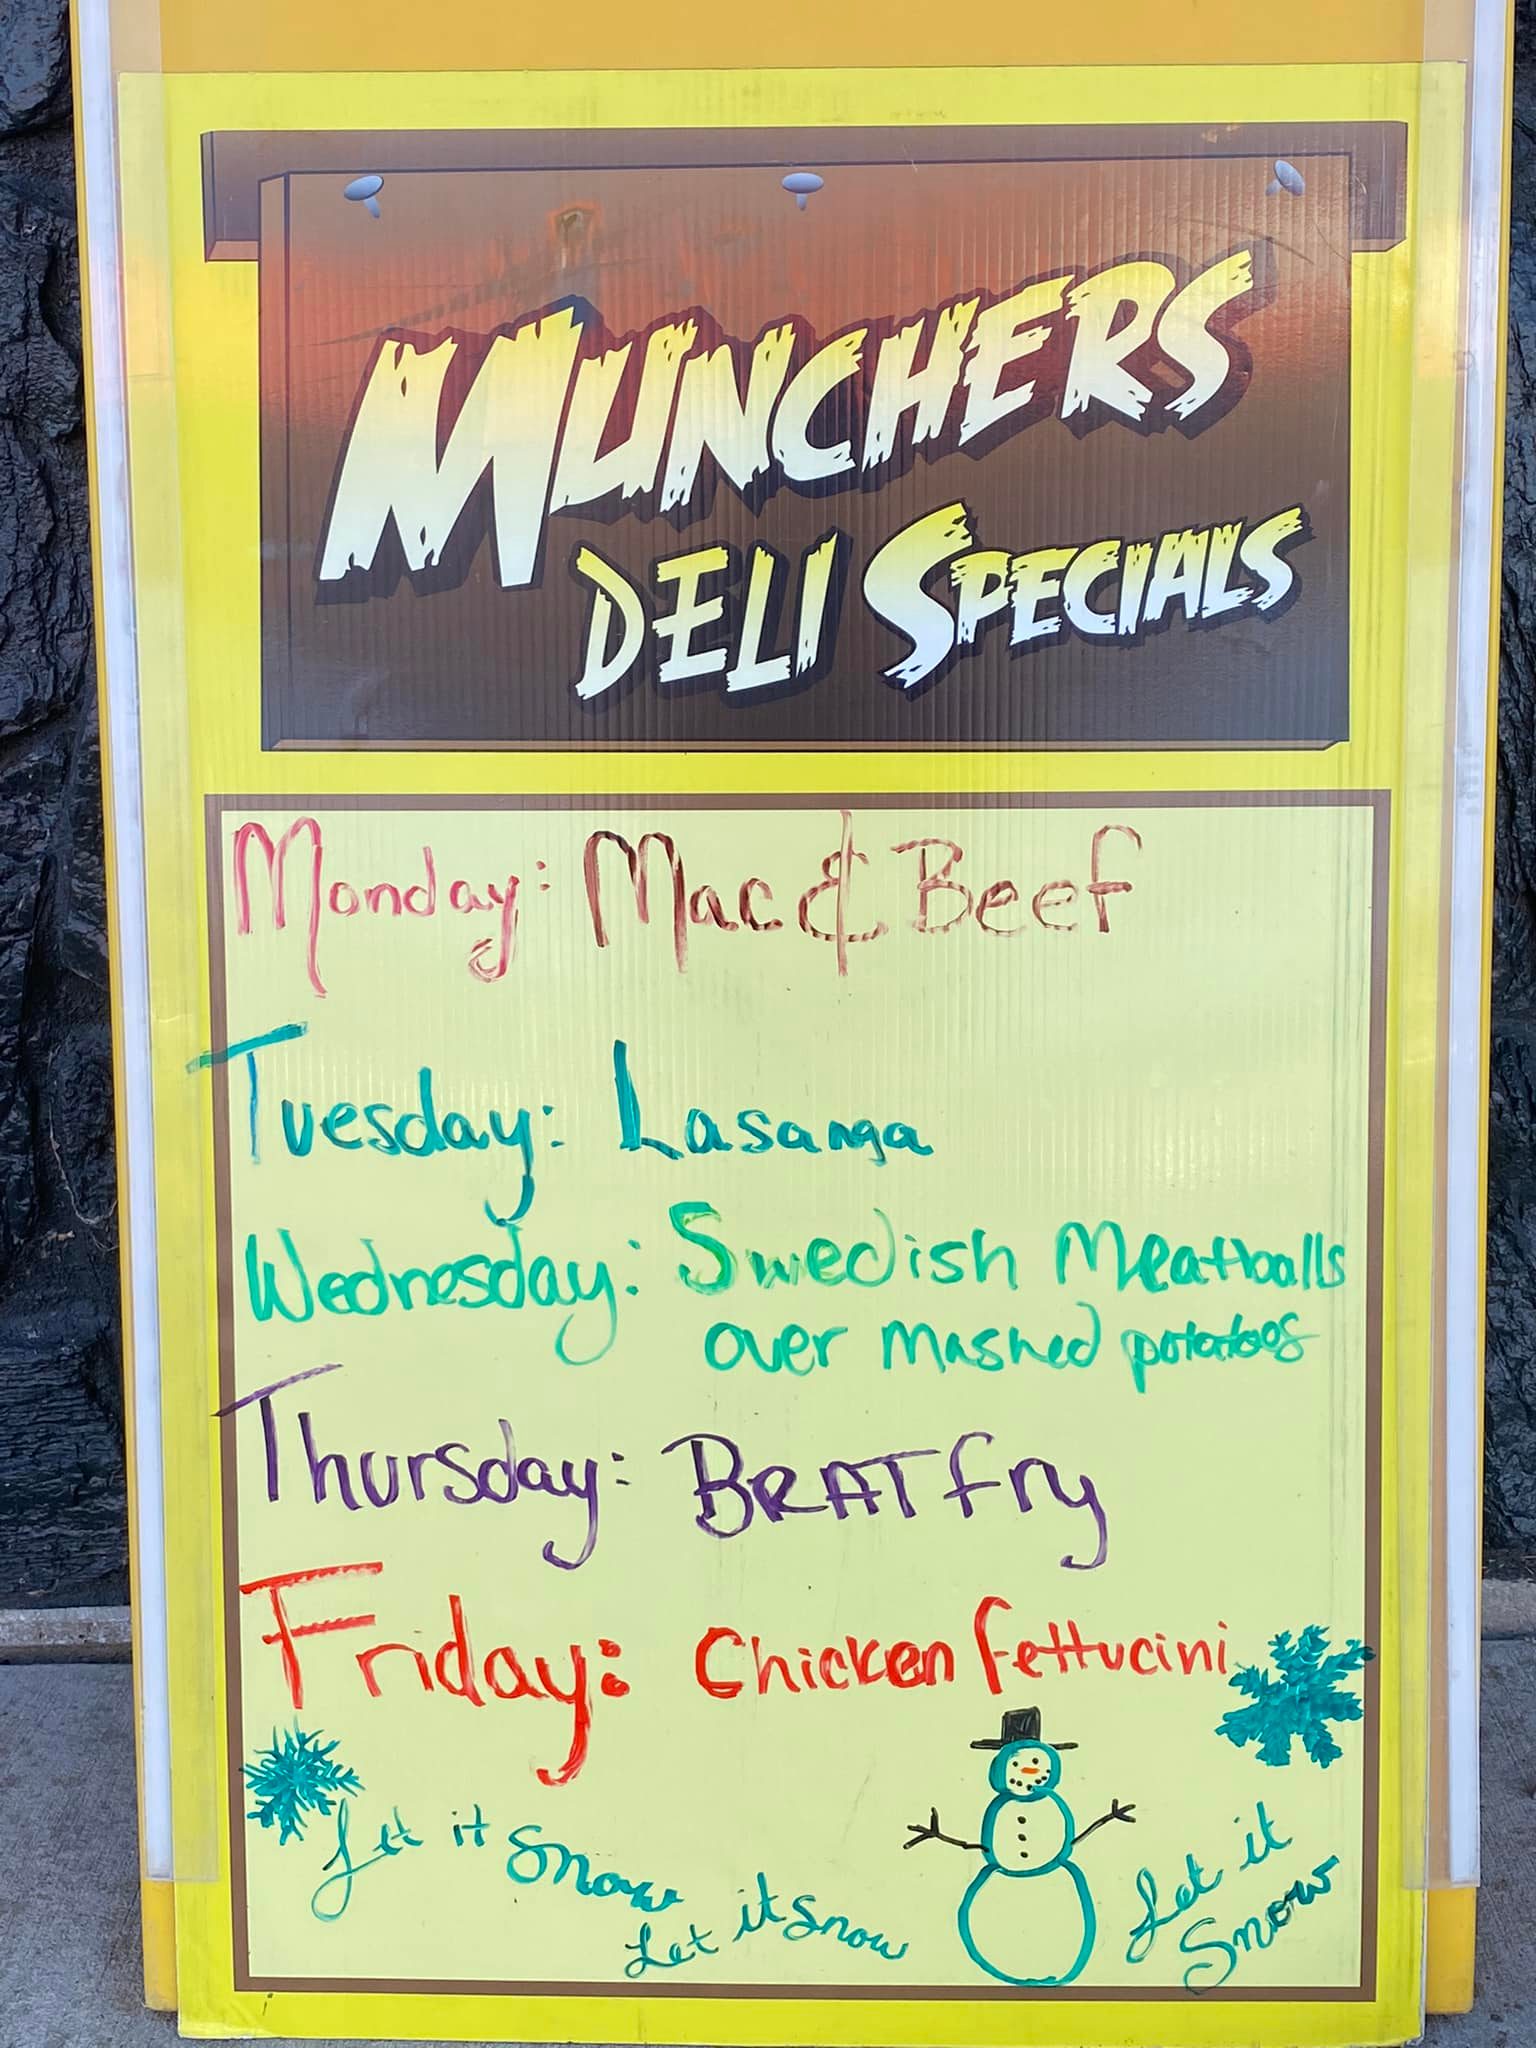 MUNCHERS
DELI SPECIALS
Monday: Mac & Beef
Tuesday: Lasanga
Wednesday: Swedish Meatballs
over mashed potatoes
Thursday: BRAT fry
Friday: Chicken fettucini
Let it snow
Let it snow
Let it
Snow